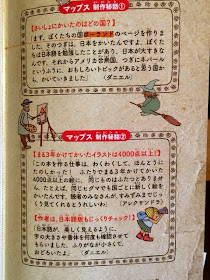 マップス 制作秘話①
【さいしょにかいたのはどの国？】
「まず、ぼくたちの国ポーランドのページを作りま
した。そのつぎは、日本をかいたんですよ。ぼく
たちは日本語を勉強したことがあり、日本が大すきな
んです。それからアメリカ合衆国、つぎにネパール
というふうに、おもしろいトピックがあると思う国か
ら、かいていきました」（ダニエル）
マップス 制作秘話②
【まる3年かけてかいたイラストは4000点以上！】
「この本を作る仕事は、わくわくして、ほんとうに
たのしかった！ ふたりでまる3年かけてかいた
4000点以上の絵に、同じものはふたつとありませ
ん。たとえば、同じヒグマでも国ごとに新しく絵を
かいたんですよ。読者のみなさんがすみずみまでじっく
り見てくれるとうれしいわ」（アレクサンドラ）
【作者は、日本語版もじっくりチェック！】
「日本語が、美しく見えるように、
字の大きさや書体を何度も確認させて
もらいました。ふりがなが小さくて、
おどろいたよ」（ダニエル）